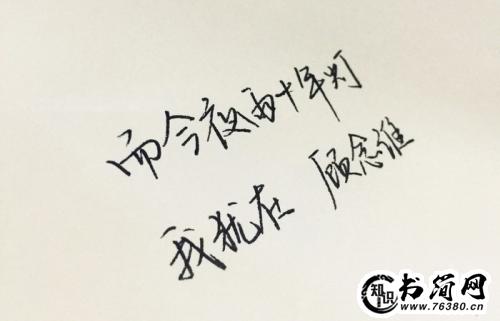 而今夜雨十年灯
我犹在 顾念谁
知识
书简网
www.76380.cn